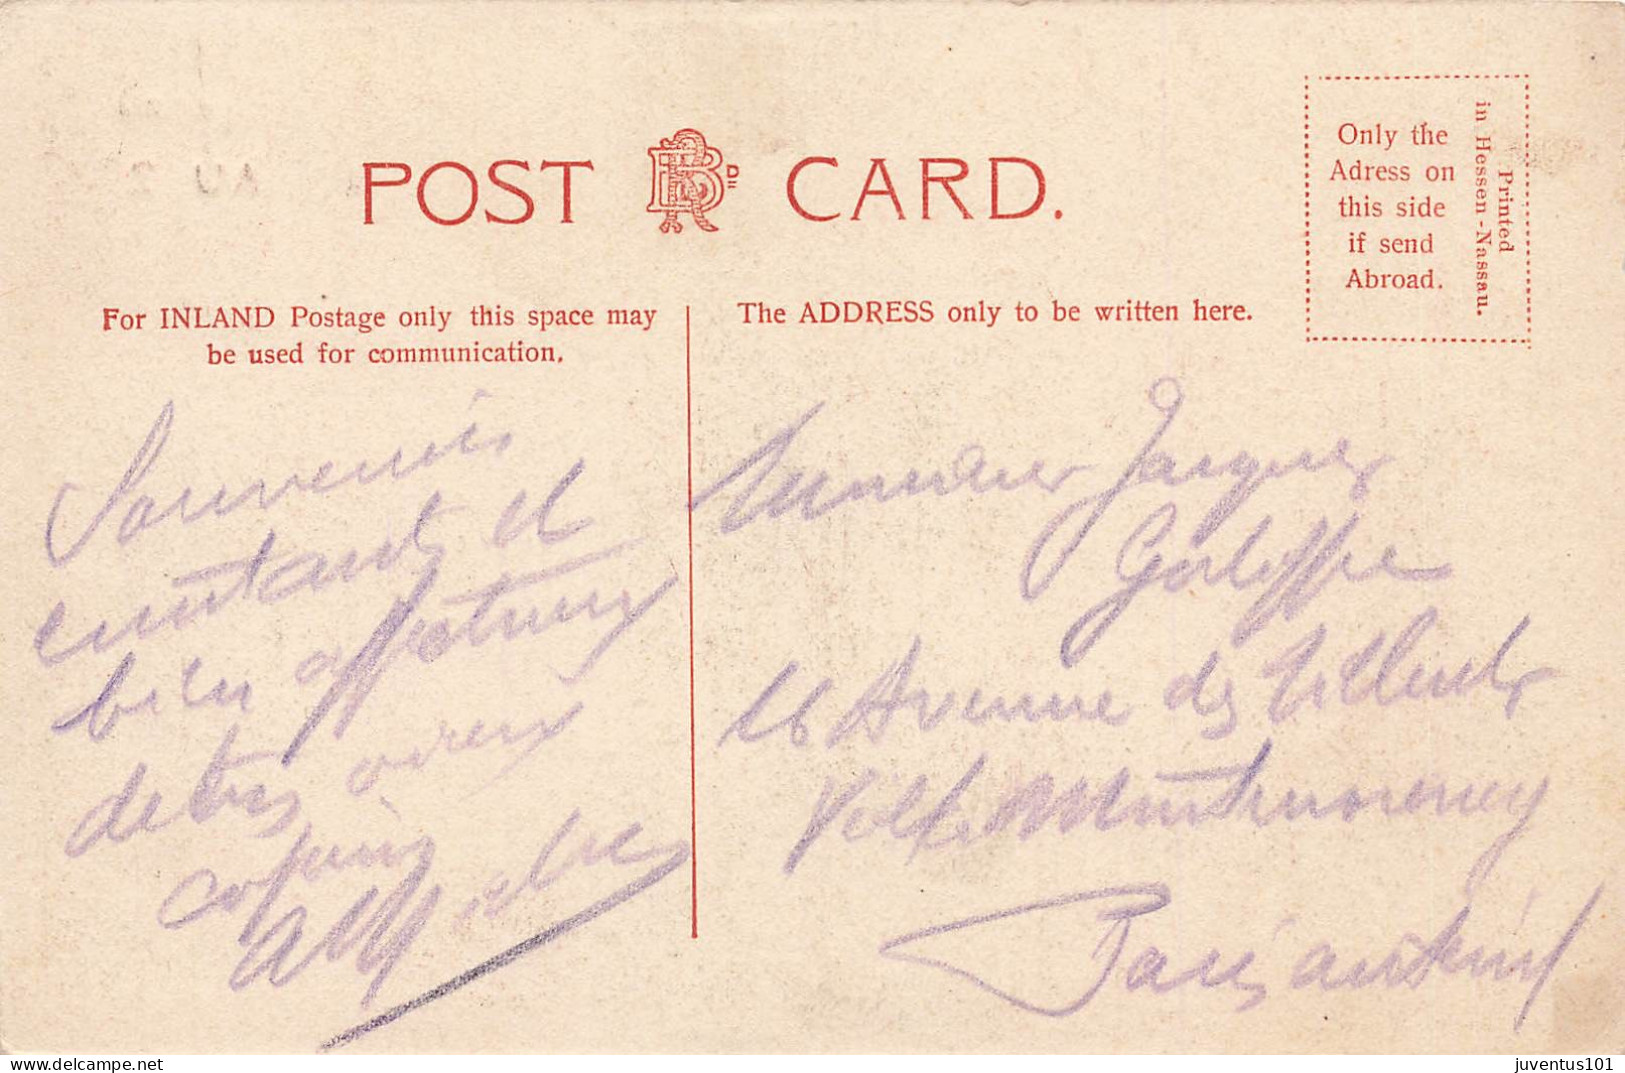 POST CARD.
Only the
Adress on
this side
if send
Abroad.
Printed
in Hessen-Nassau.
For INLAND Postage only this space may
be used for communication.
The ADDRESS only to be written here.
Souvenirs
constants et
bien affectueux
de tes vieux
copains
Monsieur Jacques
16 Avenue des Tilleuls
Villa Montmorency
Paris auteuil
juventus101